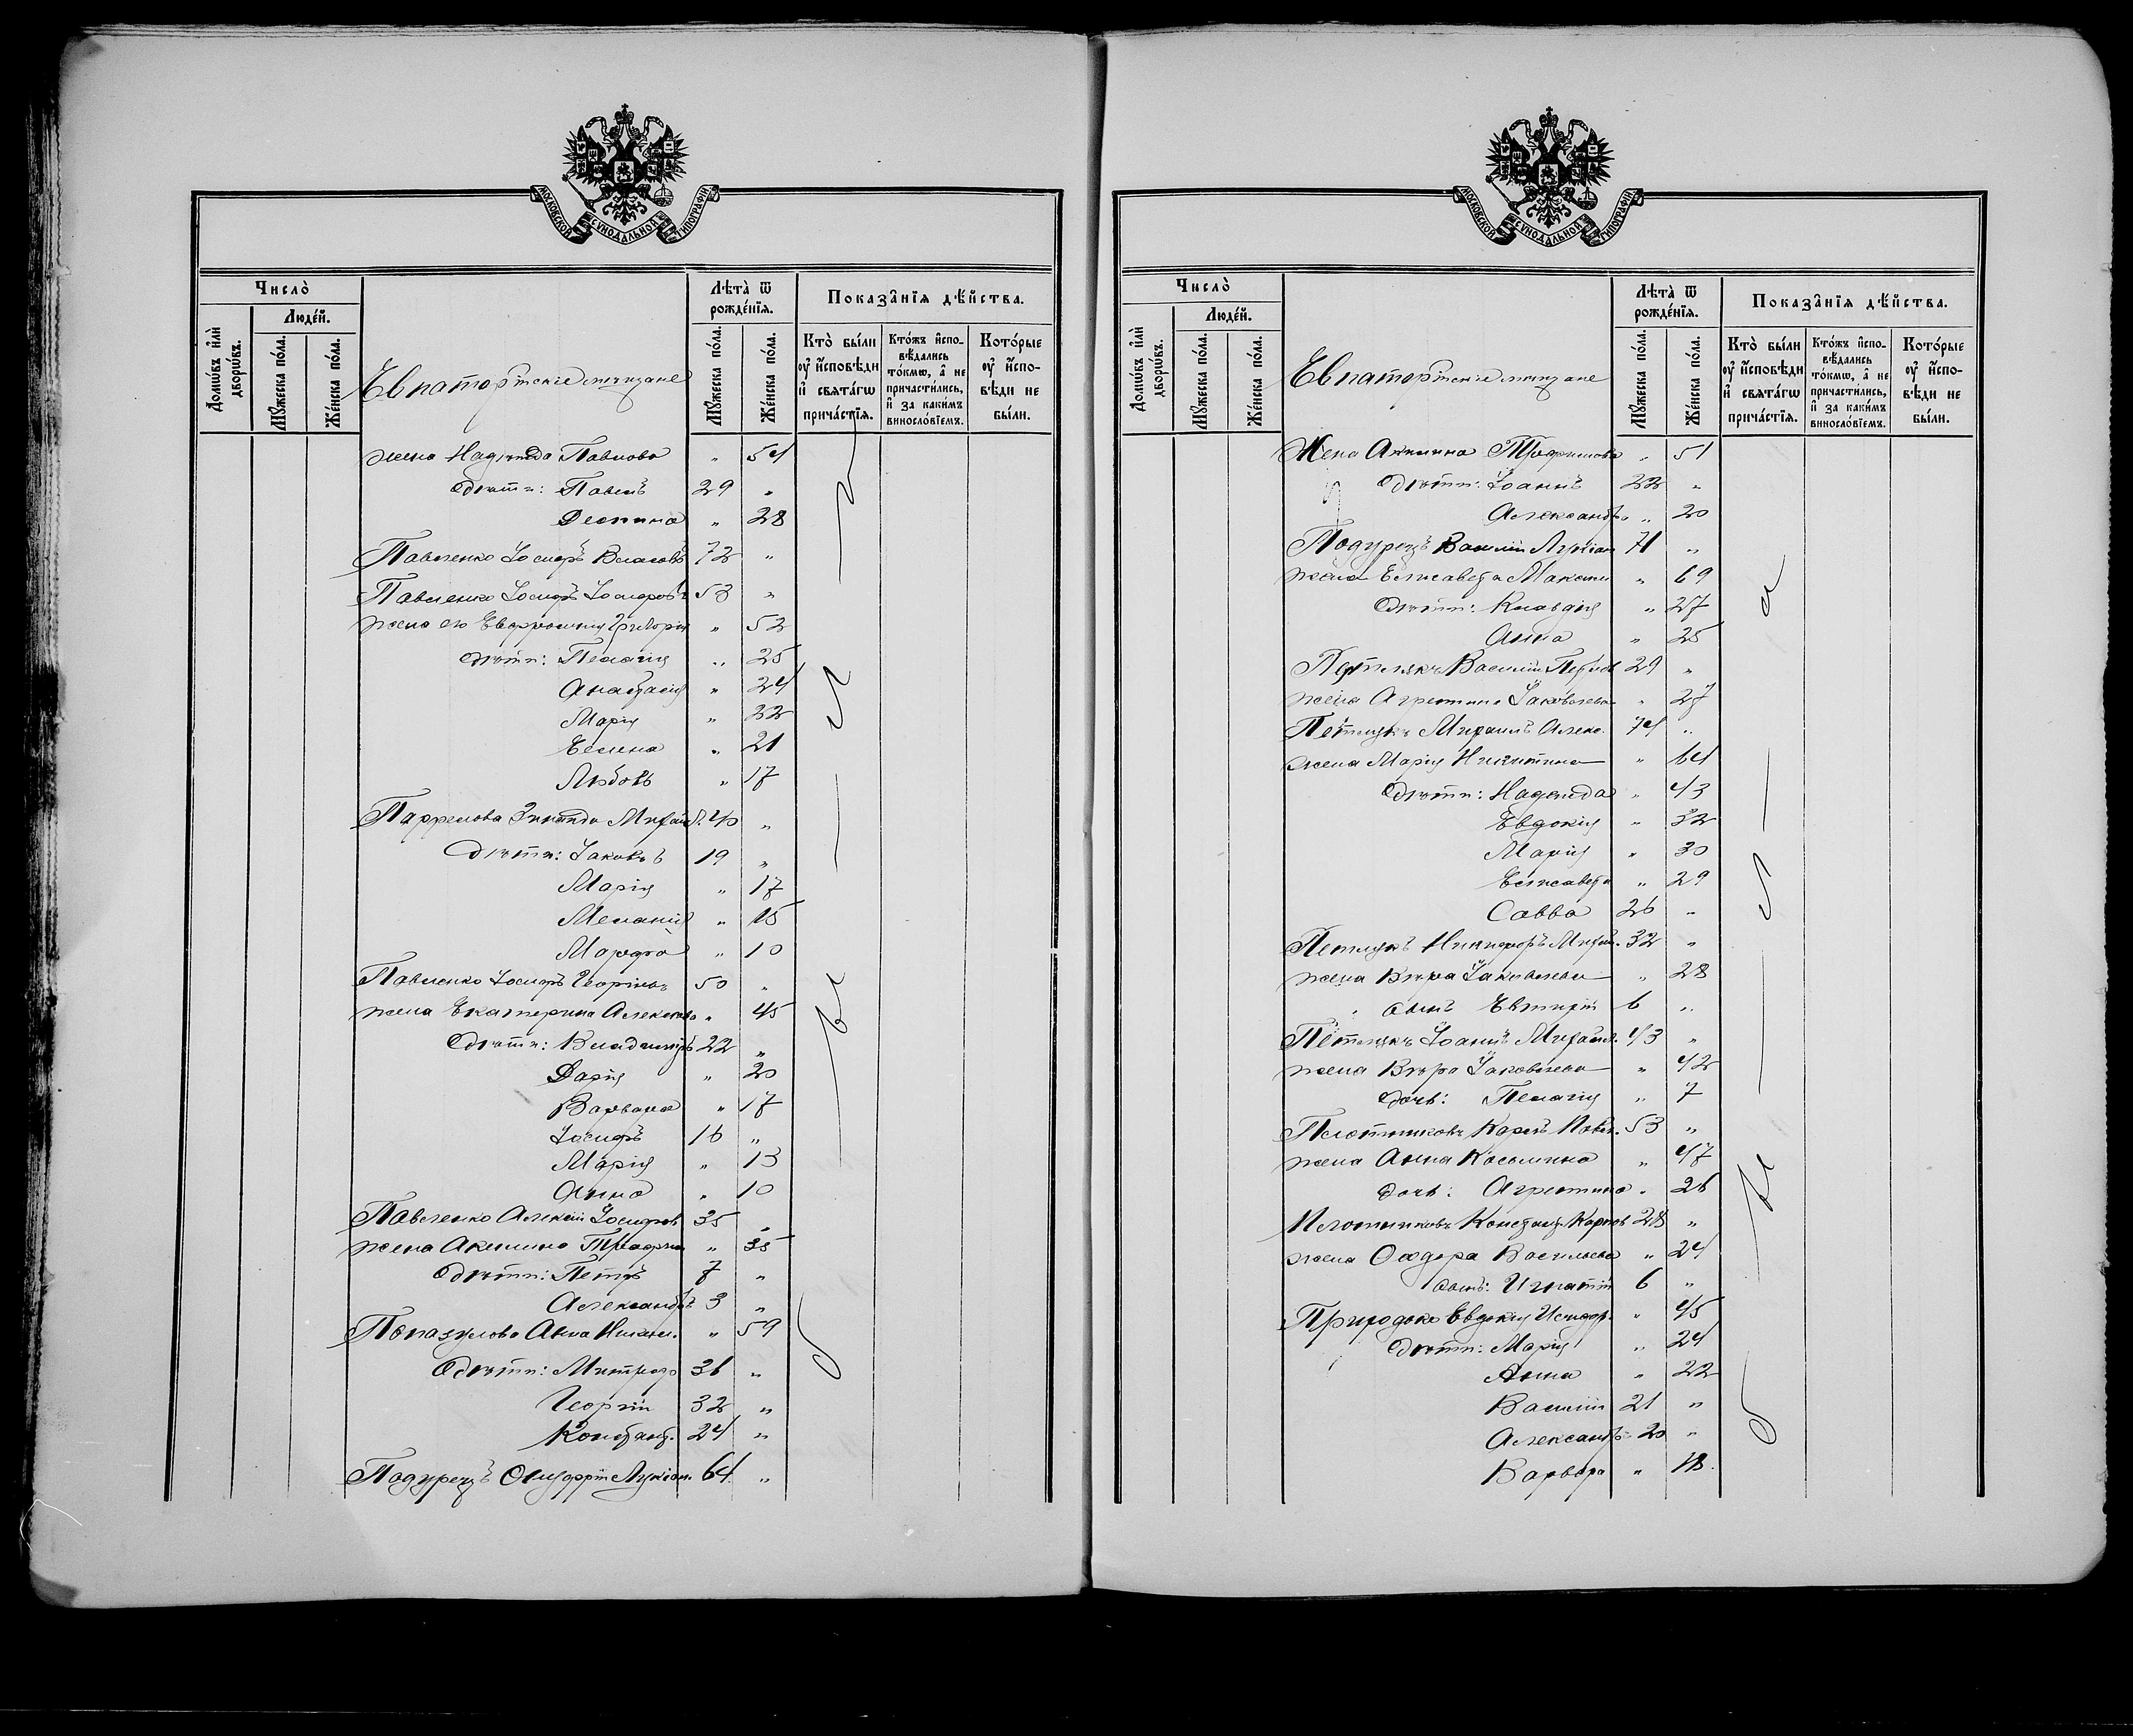 МОСКОВСКОЙ СѴНОДАЛЬНОЙ ТИПОГРАФІИ
Число̀
Люде́й.
Домѡ́въ и҆лѝ дворѡ́въ.
Мꙋ́жеска по́ла.
Же́нска по́ла.
Евпаторійскіе мѣщане
Лѣта̀ ѿ рожде́нїѧ.
Мꙋ́жеска по́ла.
Же́нска по́ла.
Показа̑нїѧ дѣ́йства.
Кто̀ бы́ли ᲂу҆ и҆́сповѣди и҆ свѧта́гѡ прича́стїѧ.
Кто́жъ и҆спо-
вѣ́дались
то́кмѡ, а҆ не
причасти́лись,
и҆ за каки́мъ
виносло́вїемъ.
Кото́рые ᲂу҆ и҆́спо-
вѣди не
бы́ли.
жена Надежда Павлова " 54
Дѣти: Павелъ 29 "
Деспина " 28
Павленко Іосифъ Власовъ 72 "
Павленко Іосифъ Іосифовъ 53 "
жена его Евфросинія Григорія " 52
дѣти: Пелагія " 25
Анастасія " 24
Марія " 22
Елена " 21
Любовь " 17
Зинаида Михаил. 40 "
Дѣти: Іаковъ 19 "
Марія " 17
Меланія " 15
Марфа " 10
Павленко Іосифъ Георгіевъ 50 "
жена Екатерина Алексѣева " 45
Дѣти: Владиміръ 22 "
Дарія " 20
Варвара " 17
Іосифъ 16 "
Марія " 13
Анна " 10
Павленко Алексій Іосифовъ 35 "
жена Акилина Трофим " 35
Дѣти: Петръ 7 "
Александръ 3 "
Попазулова Анна Никол. " 59
Дѣти: Митроф 36 "
Георгій 32 "
Констант. 24 "
Подурецъ Онуфрій Лукіан. 64 "
МОСКОВСКОЙ СѴНОДАЛЬНОЙ ТИПОГРАФІИ
Число̀
Люде́й.
Домѡ́въ и҆лѝ дворѡ́въ.
Мꙋ́жеска по́ла.
Же́нска по́ла.
Евпаторійскіе мѣщане
Лѣта̀ ѿ рожде́нїѧ.
Мꙋ́жеска по́ла.
Же́нска по́ла.
Показа̑нїѧ дѣ́йства.
Кто̀ бы́ли ᲂу҆ и҆́сповѣди и҆ свѧта́гѡ прича́стїѧ.
Кто́жъ и҆спо-
вѣ́дались
то́кмѡ, а҆ не
причасти́лись,
и҆ за каки́мъ
виносло́вїемъ.
Кото́рые ᲂу҆ и҆́спо-
вѣди не
бы́ли.
Жена Акилина Трофимова " 51
Дѣти: Іоаннъ 22 "
Александра " 20
Подурецъ Василій Лукіан 71 "
жена Елисавета Максим " 69
Дѣти: Клавдія " 27
Анна " 25
Петлякъ Василій 29 "
жена Агрипина Іаковлева " 27
Петлякъ Михаилъ Алекс. 74 "
жена Марія Никитина " 64
Дѣти: Надежда " 43
Евдокія " 32
Марія " 30
Елисавета " 29
Савва 26 "
Петлякъ Никифоръ Михаи. 32 "
жена Вѣра Іаковлева " 28
сынъ Евтихій 6 "
Петлякъ Іоаннъ Михаил. 43 "
жена Вѣра Іаковлева " 42
дочь: Пелагія " 7
Плотниковъ Карпъ Павл. 53 "
жена Анна Косьмина " 47
дочь: Агрипина " 26
Плотниковъ Констант. Карповъ 28 "
жена Ѳеодора Васильева " 24
сынъ: Игнатій 6 "
Природько Евдокія Исидор. " 45
Дѣти: Марія " 24
Анна " 22
Василій 21 "
Александръ 20 "
Варвара " 18